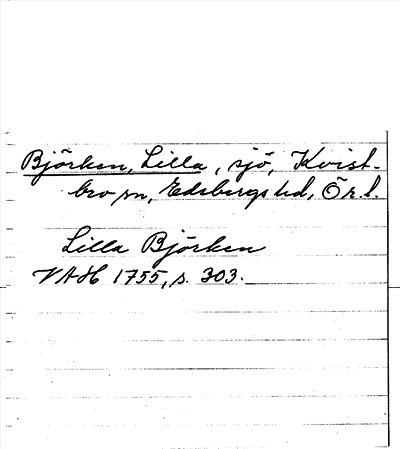 Björken, Lilla, sjö, Kvist-
bro sn, Edsbergs hd, Ör. l.
Lilla Björken
VAH 1755, s. 303.